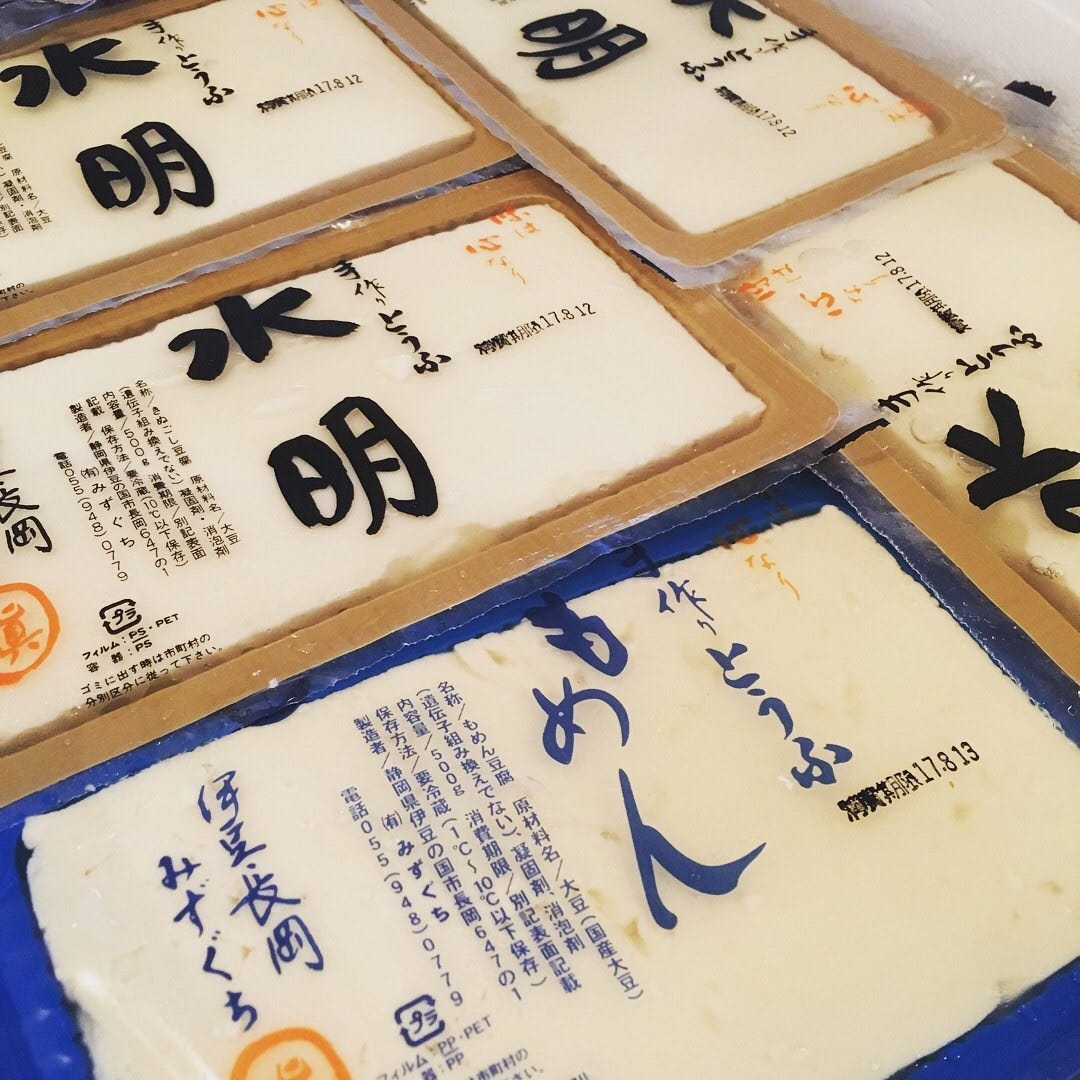 水
明
手作りとうふ
消費期限17.8.12
心なり
原材料名/大豆
凝固剤・消泡剤
別記表面
明
手作りとうふ
消費期限17.8.12
味は
心なり
手作りとうふ
消費期限17.8.12
水
明
名称/きぬごし豆腐 原材料名/大豆
(遺伝子組み換えでない) 凝固剤・消泡剤
内容量/500g 消費期限/別記表面
記載 保存方法/要冷蔵(10℃以下保存)
製造者/静岡県伊豆の国市長岡647の1
(有)みずぐち
電話055(948)0779
長岡
眞
プラ
フィルム:PS・PET
容器:PS
ゴミに出す時は市町村の
分別区分に従って下さい。
味は
心なり
手作りとうふ
消費期限17.8.12
水
なり
手作りとうふ
もめん
消費期限17.8.13
名称/もめん豆腐 原材料名/大豆(国産大豆)
(遺伝子組み換えでない)、凝固剤、消泡剤
内容量/500g 消費期限/別記表面記載
保存方法/要冷蔵(1℃~10℃以下保存)
製造者/静岡県伊豆の国市長岡647の1
(有)みずぐち
電話055(948)0779
伊豆・長岡
みずぐち
眞
プラ
フィルム:PP・PET
容器:PP
市町村の
下さい。